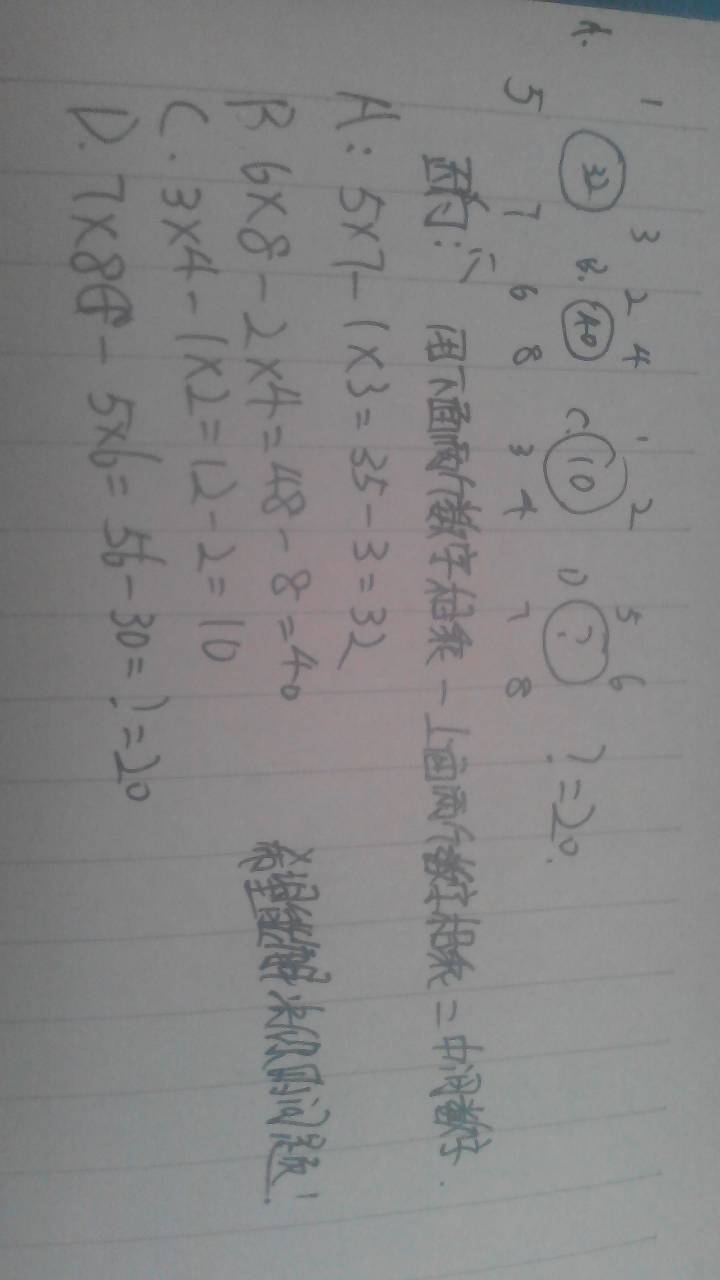 A. 1 3 B. 2 4 C. 1 2 D 5 6
32 40 10 ? ?=20.
5 7 6 8 3 4 7 8
用下面两个数字相乘-上面两个数字相乘=中间数字.
A: 5×7-1×3=35-3=32
B 6×8-2×4=48-8=40
C. 3×4-1×2=12-2=10
D. 7×8-5×6=56-30=?=20
希望能解决你的问题!